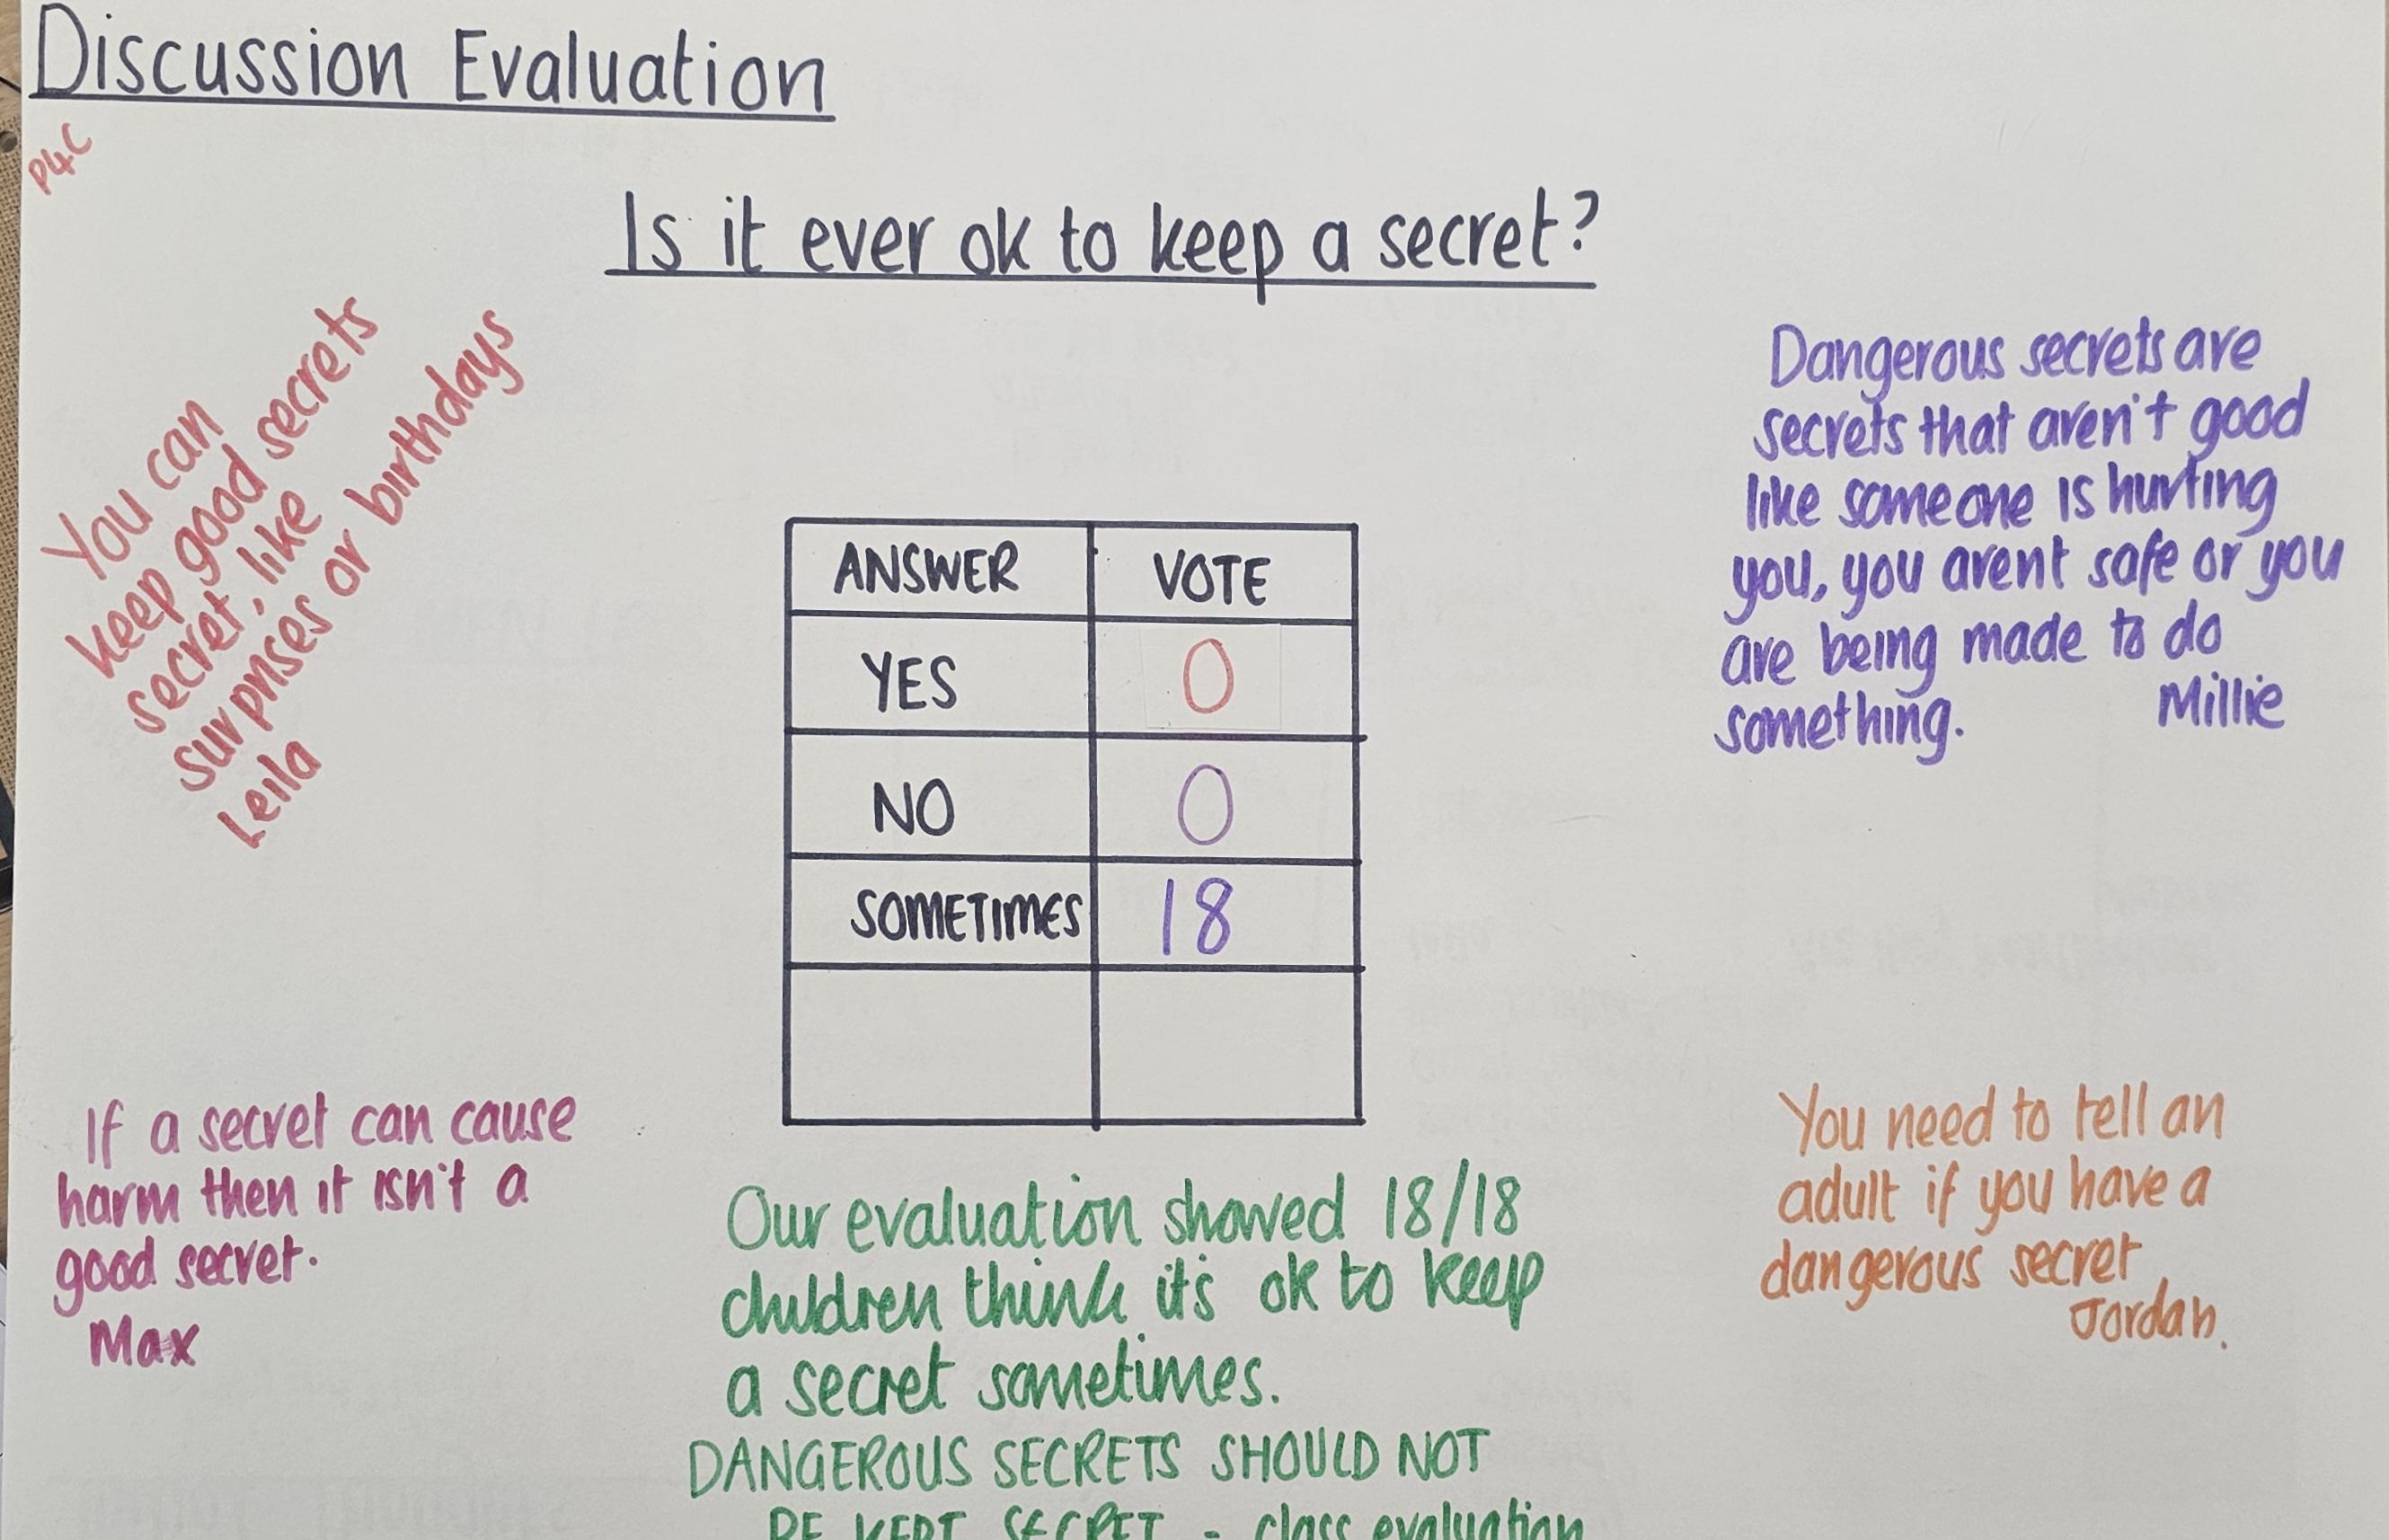 Discussion Evaluation
P4C
Is it ever ok to keep a secret?
You can
keep good secrets
secret, like
surprises or birthdays
Leila
Dangerous secrets are
secrets that aren't good
like someone is hurting
you, you arent safe or you
are being made to do
something.
Millie
ANSWER VOTE
YES 0
NO 0
SOMETIMES 18
If a secret can cause
harm then it isn't a
good secret.
Max
You need to tell an
adult if you have a
dangerous secret
Jordan.
Our evaluation showed 18/18
children think it's ok to keep
a secret sometimes.
DANGEROUS SECRETS SHOULD NOT
BE KEPT SECRET - class evaluation